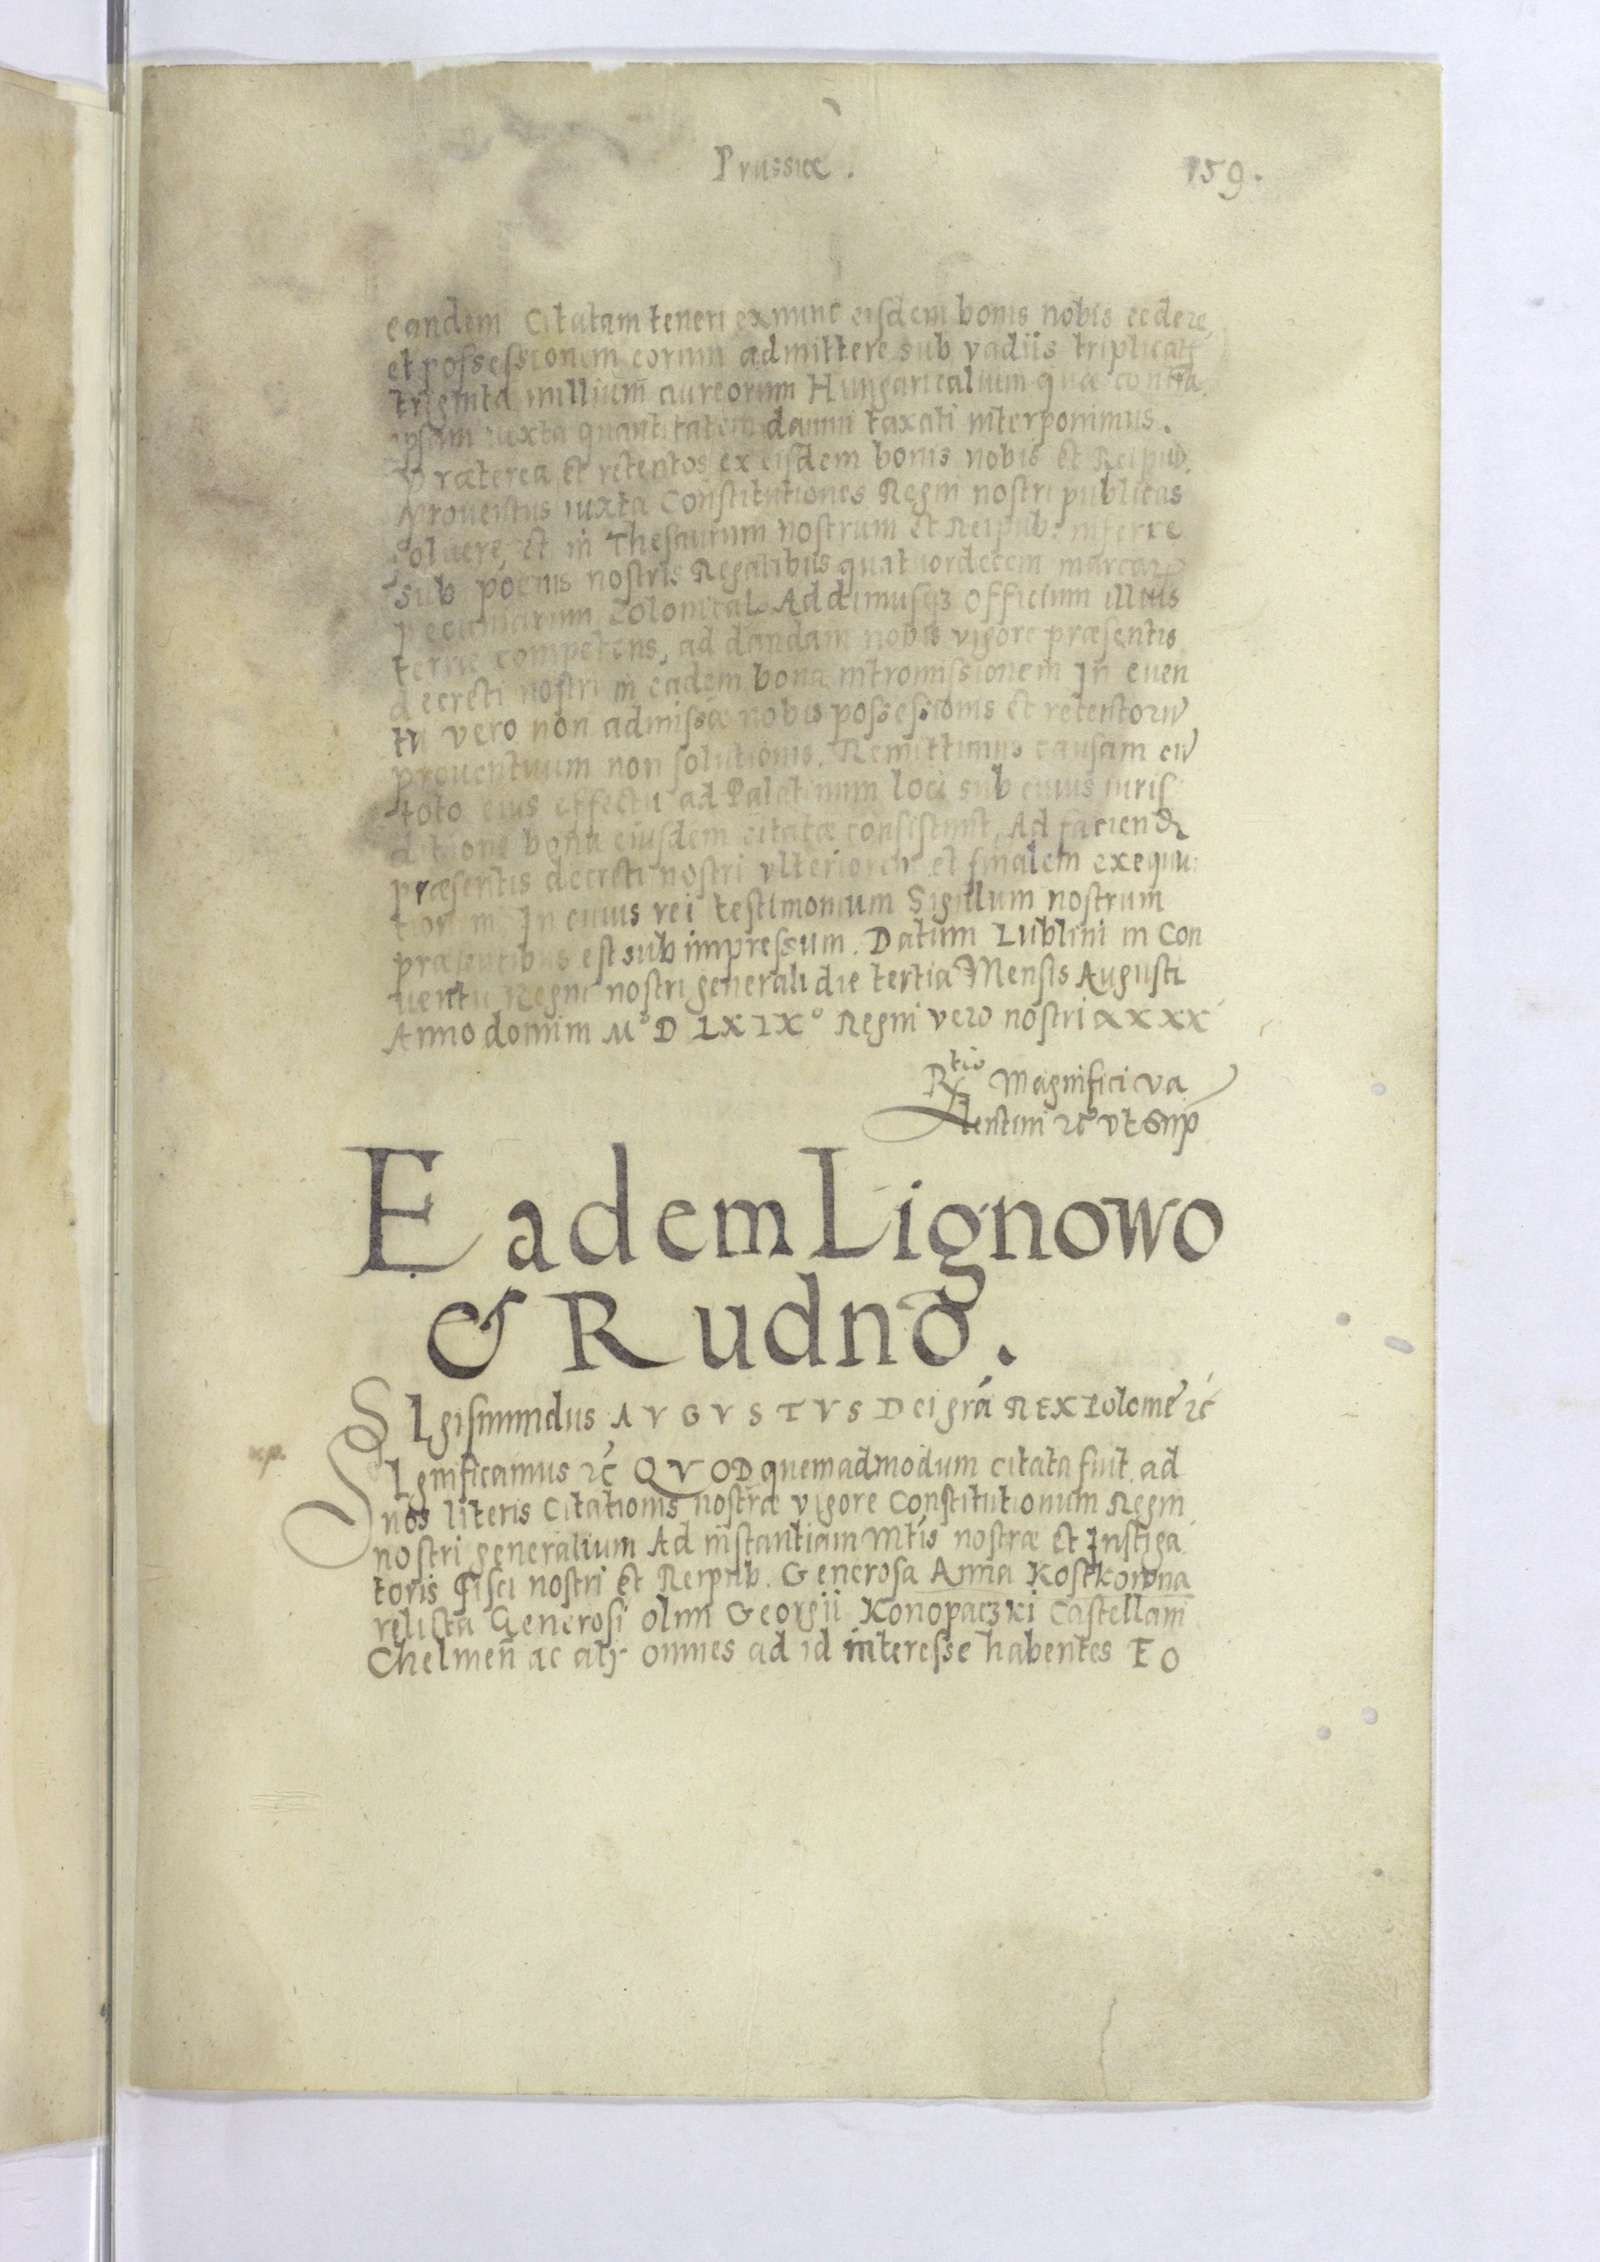 Prussiæ. 159.
eandem Citatam teneri ex nunc eisdem bonis nobis cedere,
et possessionem eorum admittere sub vadiis triplicatȝ
triginta millium aureorum Hungaricalium quæ contra
ipsam iuxta quantitatem damni taxati interponimus.
Præterea et retentos ex eisdem bonis nobis et Reipub.
prouentus iuxta Constitutiones Regni nostri publicas
soluere, et in Thesaurum nostrum et Reipub. inferre
sub poenis nostris Regalibus quatuordecem marcarȝ
pecuniarum Polonical. Addimusqȝ officium illius
terræ competens, ad dandam nobis vigore præsentis
decreti nostri in eadem bona intromissionem In euen
tu vero non admissæ nobis possessionis et retentorū
prouentuum non solutionis. Remittimus causam cū
toto eius effectu ad Palatinum loci sub cuius iuris
ditione bona eiusdem citatæ consistunt, Ad faciendā
præsentis decreti nostri vlteriorem et finalem exequu:
tionem. In cuius rei testimonium Sigillum nostrum
præsentibus est sub impressum. Datum Lublini in Con
uentu Regni nostri generali die tertia Mensis Augusti
Anno domini M° D LXIX° Regni vero nostri XXXX
Rtio Magnifici Va
lentini ꝛc vt Sup
Eadem Lignowo
& Rudno.
SIgismundus AVGVSTVS Dei grá REX Poloniē ꝛc
SIgnificamus ꝛc QVOD quemadmodum citata fuit ad
nos literis Citationis nostræ vigore Constitutionum Regni
nostri generalium Ad instantiam Mtis nostræ et Instiga
toris Fisci nostri et Reipub. Generosa Anna Kostkowna
relicta Generosi olim Georgii Konopaczki Castellani
Chelmeñ ac alij omnes ad id interesse habentes EO